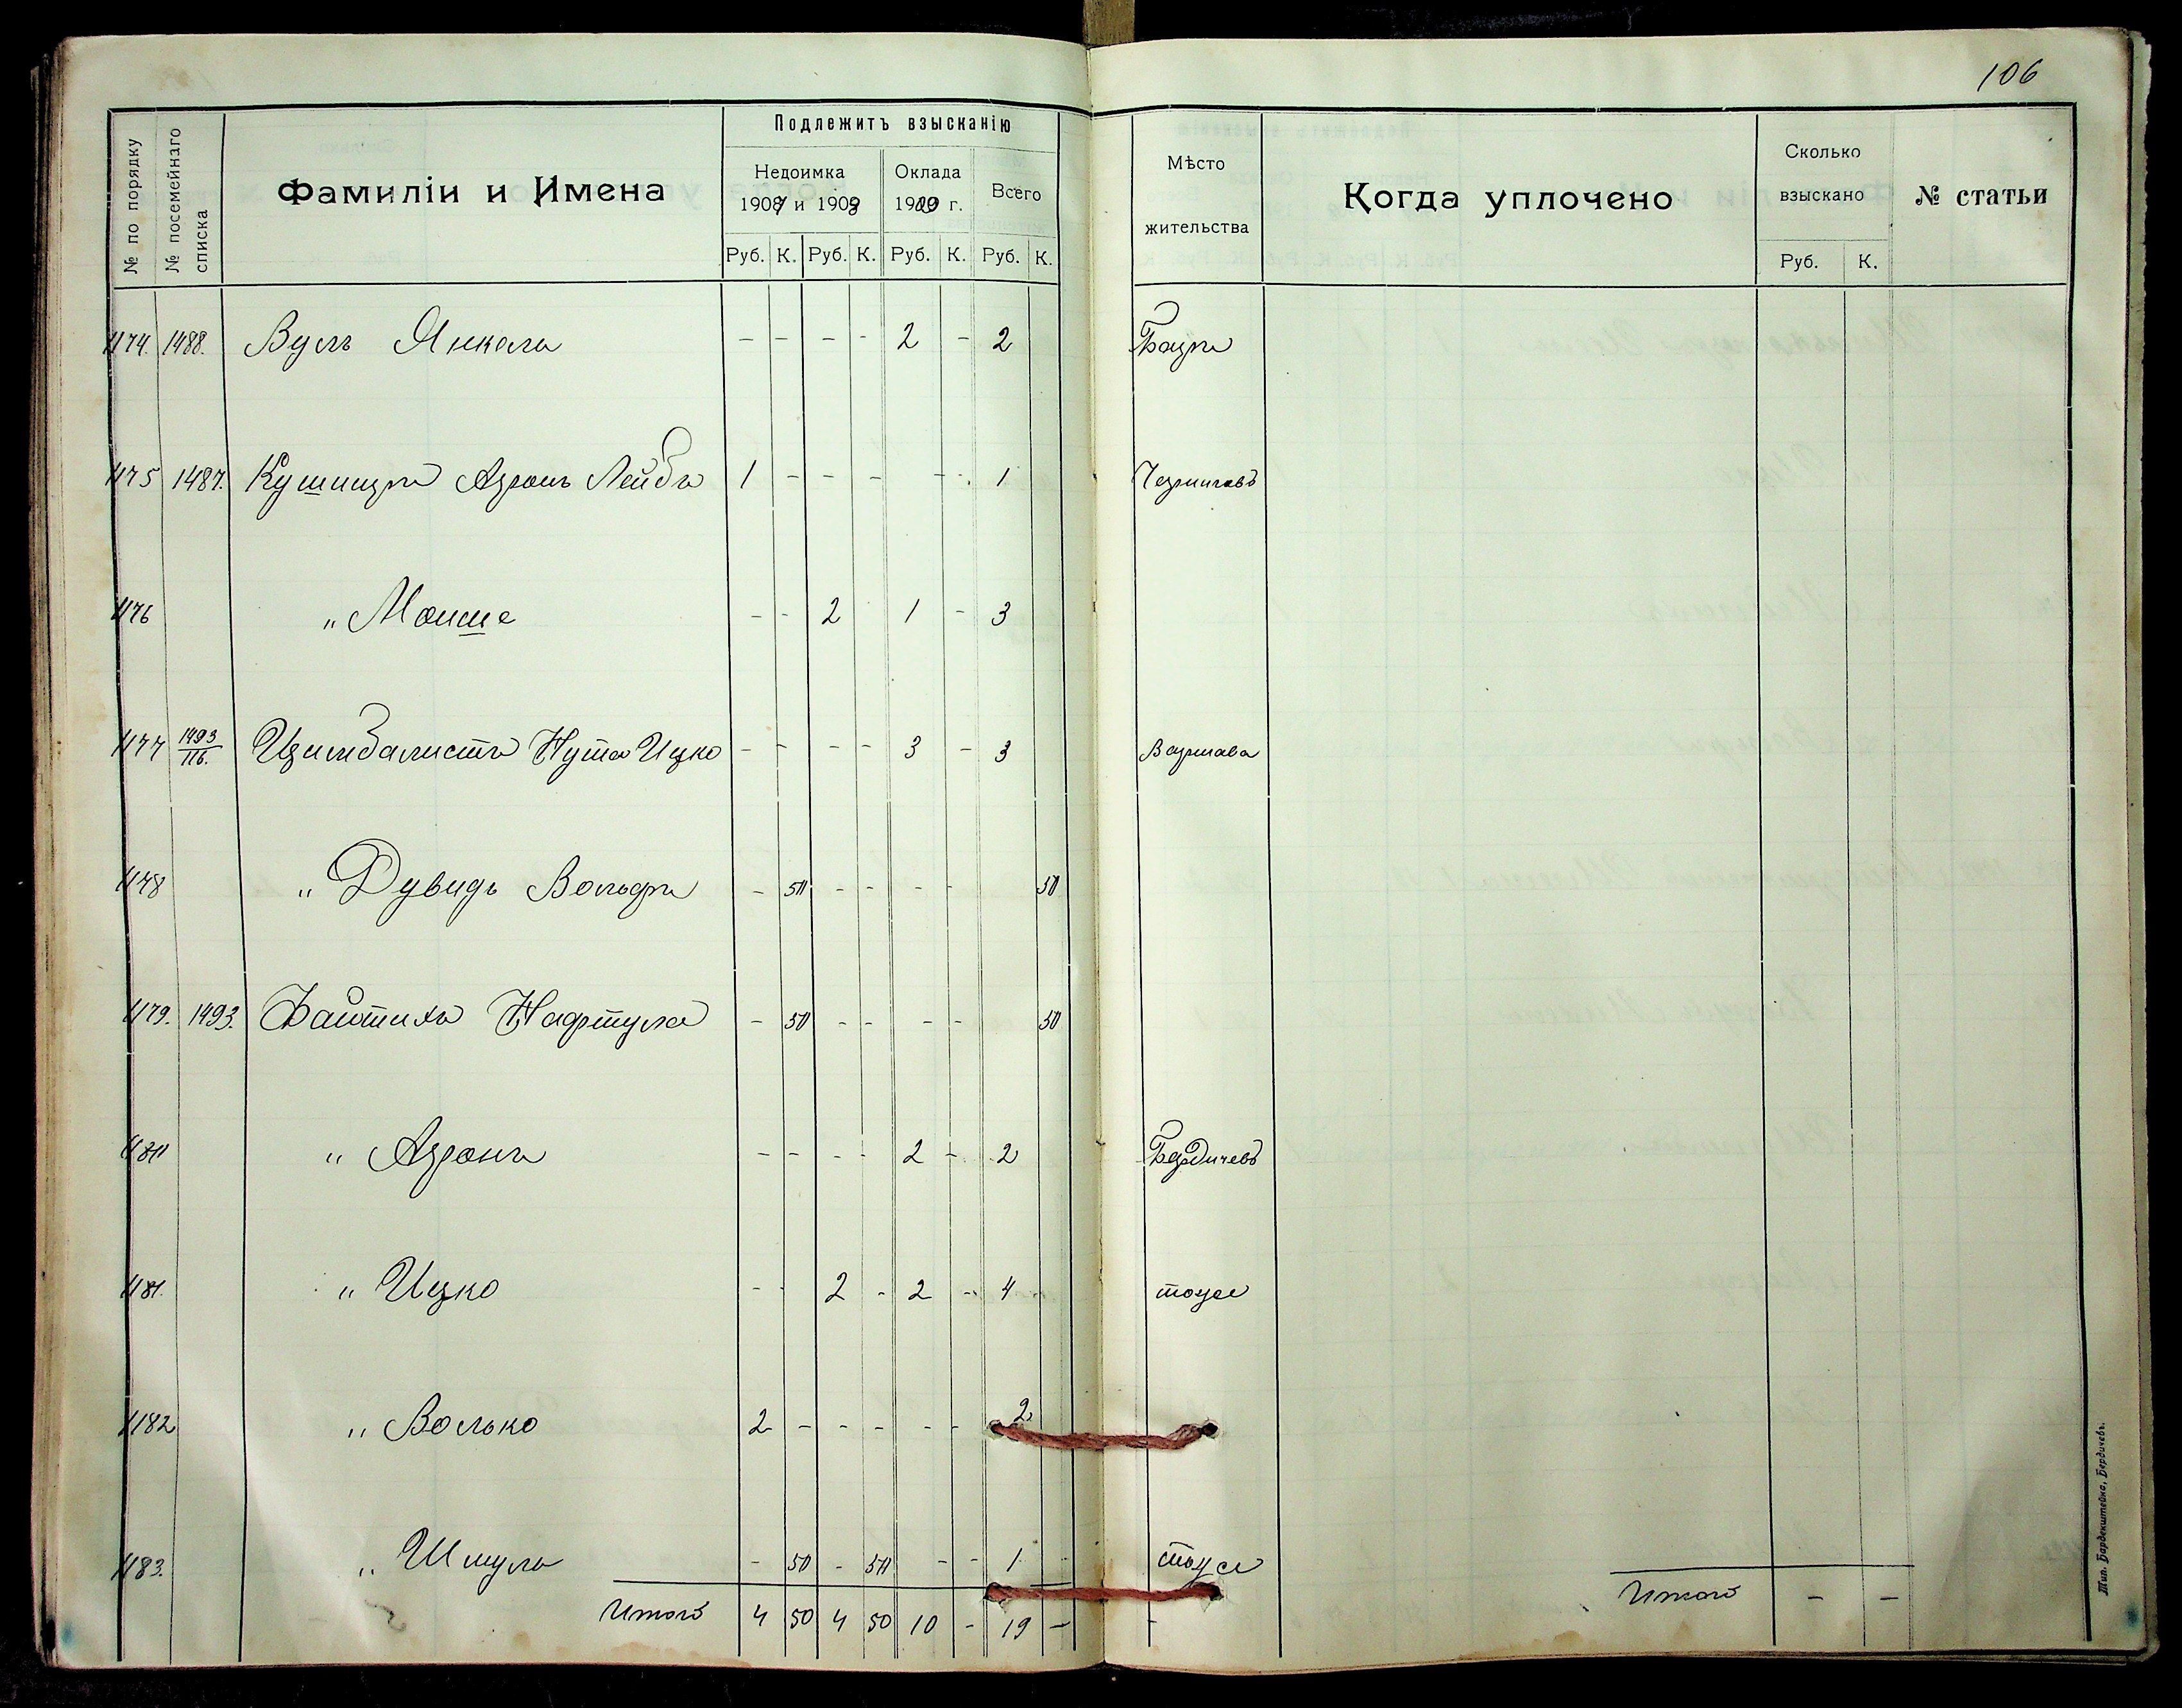 106
№ по порядку
№ посемейнаго списка
Фамиліи и Имена
Подлежитъ взысканію
Недоимка
1907 и 1908
Оклада
1909 г.
Всего
Руб. К. Руб. К. Руб. К. Руб. К.
Мѣсто жительства
Когда уплочено
Сколько взыскано
Руб. К.
№ статьи
1174. 1488. Вулъ Янкель - - - - 2 - 2
1175 1487. Кушниръ Аронъ Лейба 1 - - - - 1 Черниговъ
1176 " Моише - - 2 1 - 3
1177 1493/116. Цимбалистъ Нута Ицко - - - - 3 - 3 Варшава
1178 " Дувидъ Вольфъ - 50 - - - - 50
1179. 1493. Нафтула - 50 - - - - 50
1180 " Аронъ - - - - 2 - 2 Бердичевъ
1181. " Ицко - - 2 - 2 - 4 - тоже
1182 " Волько 2 - - - - - 2
1183. " Шмуль - 50 - 50 - - 1 - тоже
Итого 4 50 4 50 10 - 19 - -
Итого - -
Тип. Барденштейна, Бердичевъ.